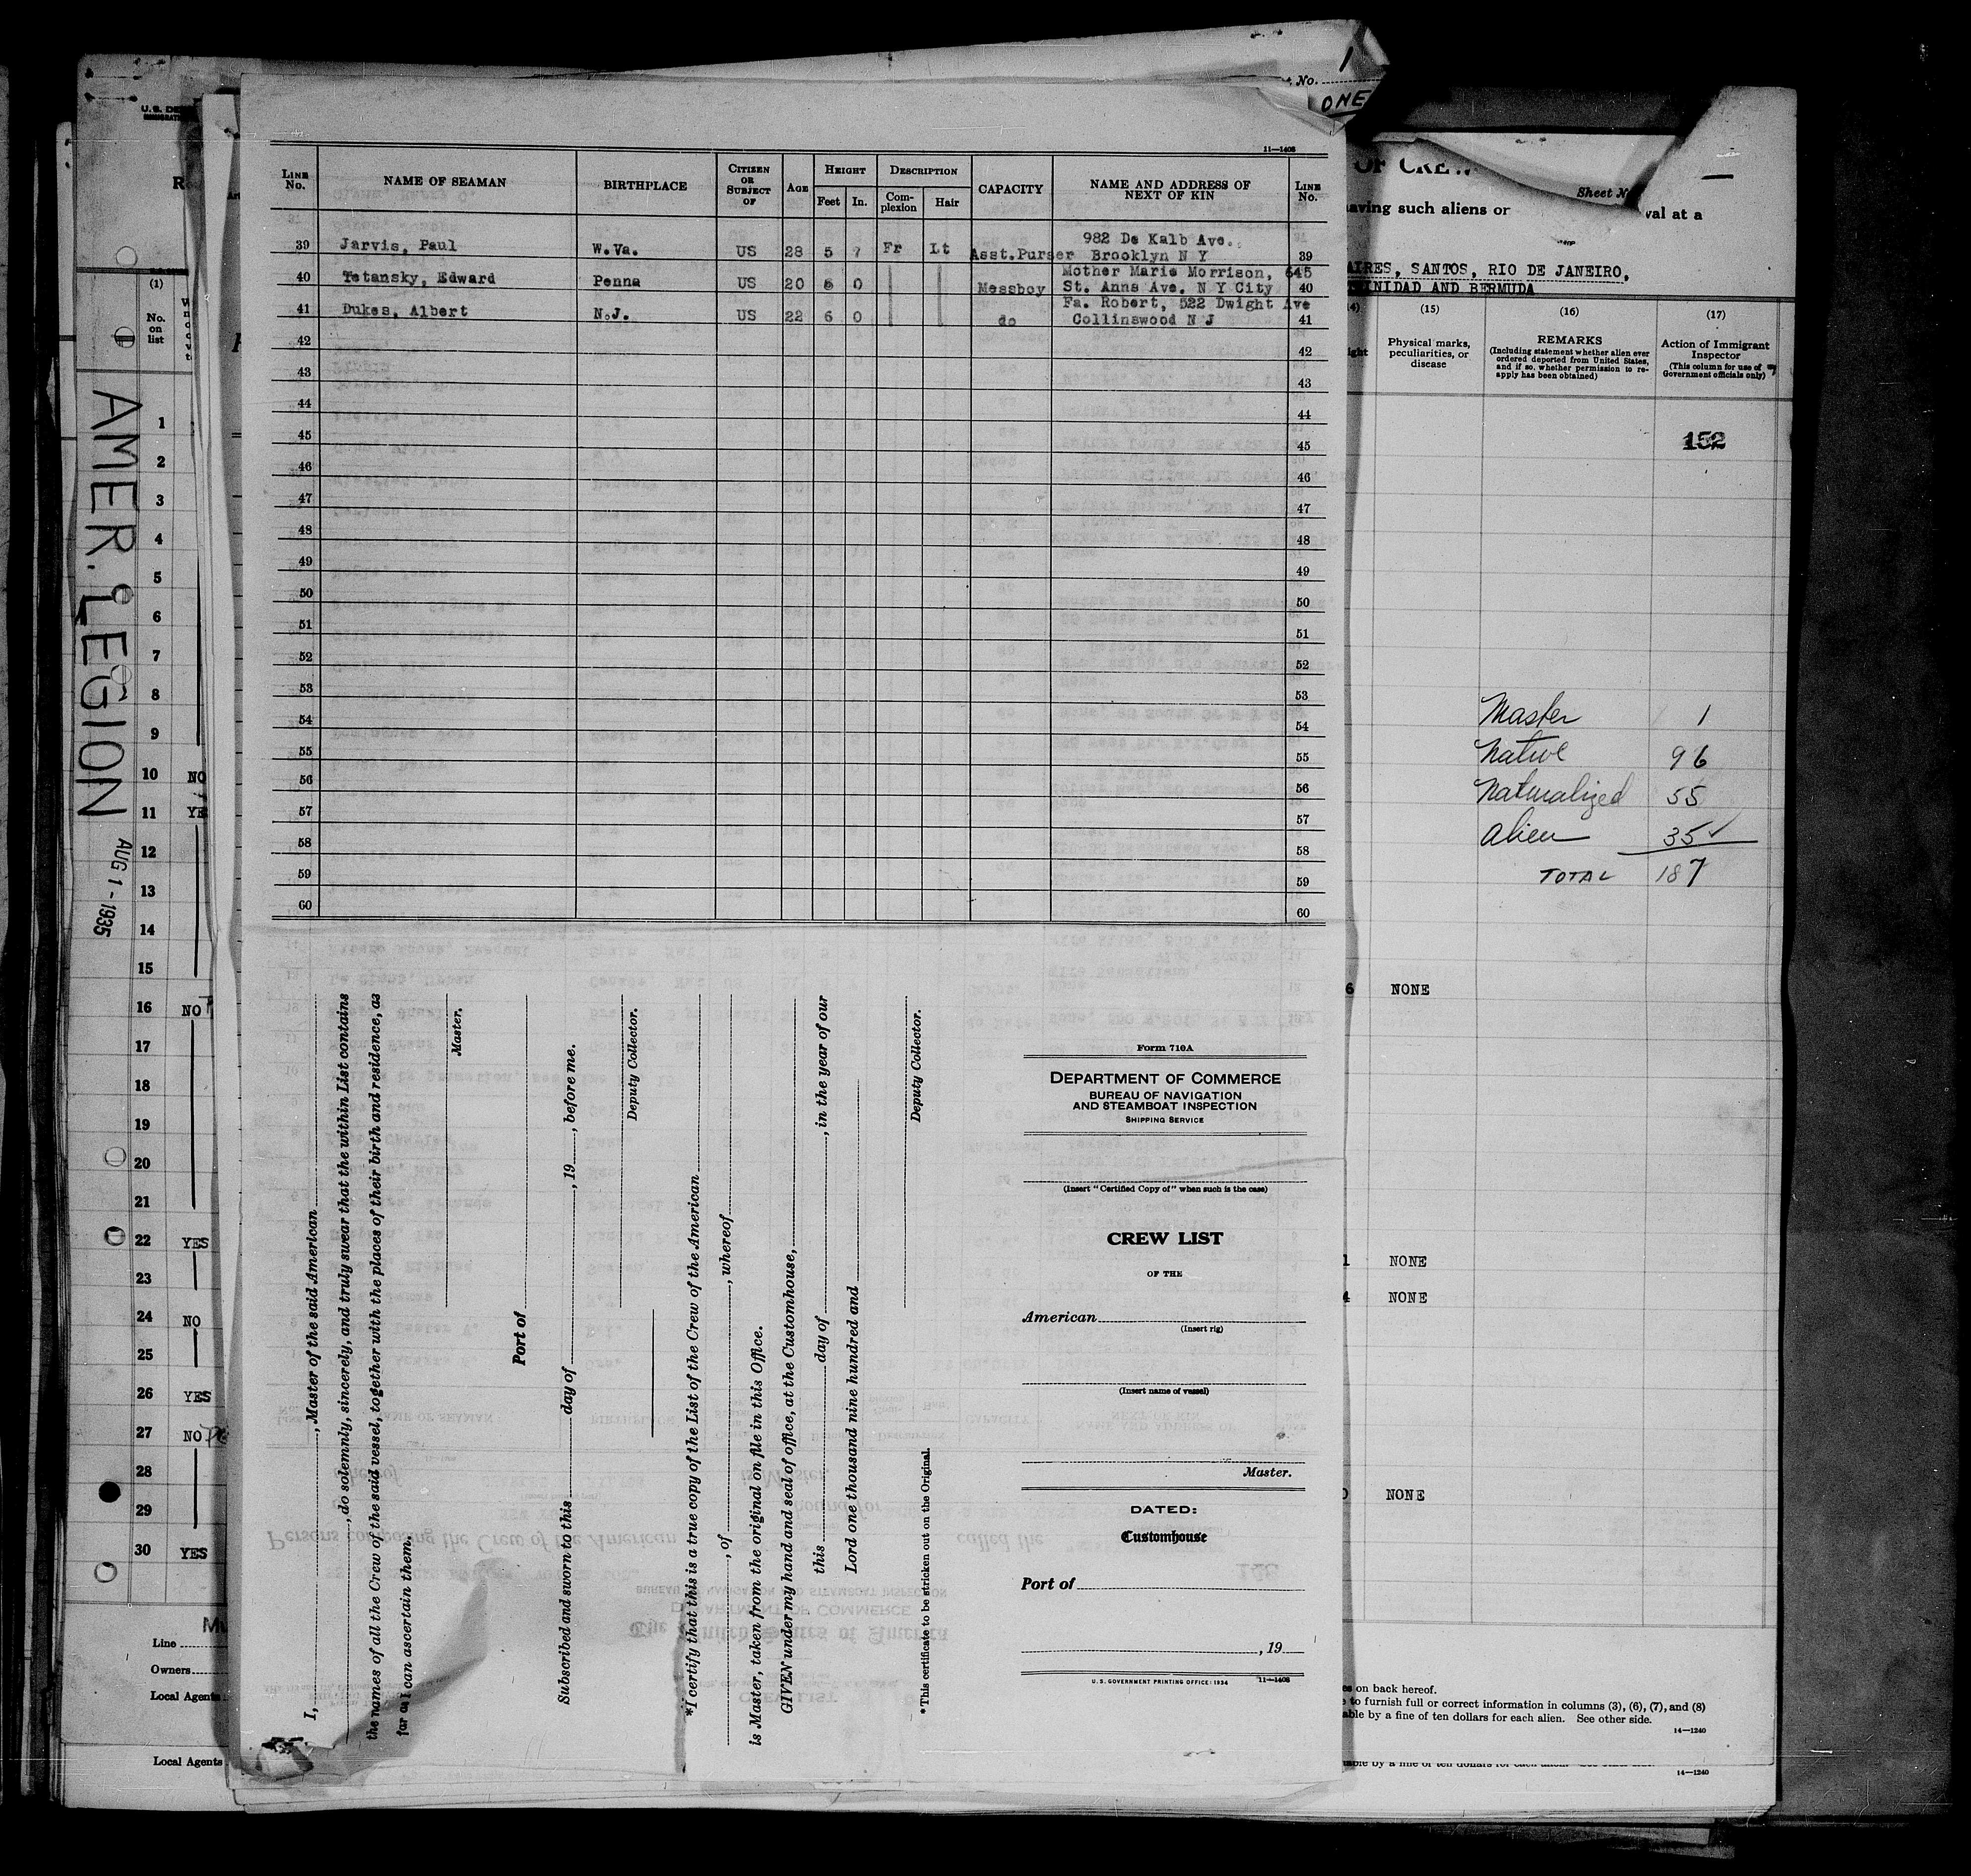 No. 1
ONE
11—1408
LINE No. | NAME OF SEAMAN | BIRTHPLACE | CITIZEN OR SUBJECT OF | AGE | HEIGHT Feet In. | DESCRIPTION Complexion Hair | CAPACITY | NAME AND ADDRESS OF NEXT OF KIN | LINE No.
982 De Kalb Ave.
39 Jarvis, Paul W.Va. US 28 5 7 Fr Lt Asst.Purser Brooklyn N Y 39
Mother Marie Morrison, 645
40 Tetansky, Edward Penna US 20 6 0 Messboy St. Anns Ave. N Y City 40
Fa. Robert, 522 Dwight Ave
41 Dukes, Albert N.J. US 22 6 0 do Collinswood N J 41
42 42
43 43
44 44
45 45
46 46
47 47
48 48
49 49
50 50
51 51
52 52
53 53
54 54
55 55
56 56
57 57
58 58
59 59
60 60
I, , Master of the said American
, do solemnly, sincerely, and truly swear that the within List contains
the names of all the Crew of the said vessel, together with the places of their birth and residence, as
far as I can ascertain them.
Master.
Port of
Subscribed and sworn to this day of , 19 , before me.
Deputy Collector.
*I certify that this is a true copy of the List of the Crew of the American
, of , whereof
is Master, taken from the original on file in this Office.
GIVEN under my hand and seal of office, at the Customhouse,
this day of , in the year of our
Lord one thousand nine hundred and
Deputy Collector.
*This certificate to be stricken out on the Original.
Form 710A
DEPARTMENT OF COMMERCE
BUREAU OF NAVIGATION
AND STEAMBOAT INSPECTION
SHIPPING SERVICE
(Insert "Certified Copy of" when such is the case)
CREW LIST
OF THE
American
(Insert rig)
(Insert name of vessel)
Master.
DATED:
Customhouse
Port of
, 19
U. S. GOVERNMENT PRINTING OFFICE: 1934 11—1408
U. S. DE
(1)
No. on list
AMER. LEGION
AUG 1 - 1935
1
2
3
4
5
6
7
8
9
10 NO
11 YE
12
13
14
15
16 NO
17
18
19
20
21
22 YES
23
24 NO
25
26 YES
27 NO
28
29
30 YES
Line
Owners
Local Agents
Local Agents
OF CREW
Sheet N
aving such aliens or val at a
AIRES, SANTOS, RIO DE JANEIRO,
TRINIDAD AND BERMUDA
(15)
Physical marks, peculiarities, or disease
(16)
REMARKS
(Including statement whether alien ever ordered deported from United States, and if so, whether permission to reapply has been obtained)
(17)
Action of Immigrant Inspector
(This column for use of Government officials only)
152
Master 1
Native 96
Naturalized 55
Alien 35 ✓
TOTAL 187
6 NONE
1 NONE
4 NONE
0 NONE
es on back hereof.
e to furnish full or correct information in columns (3), (6), (7), and (8)
able by a fine of ten dollars for each alien. See other side.
14—1240
14—1240